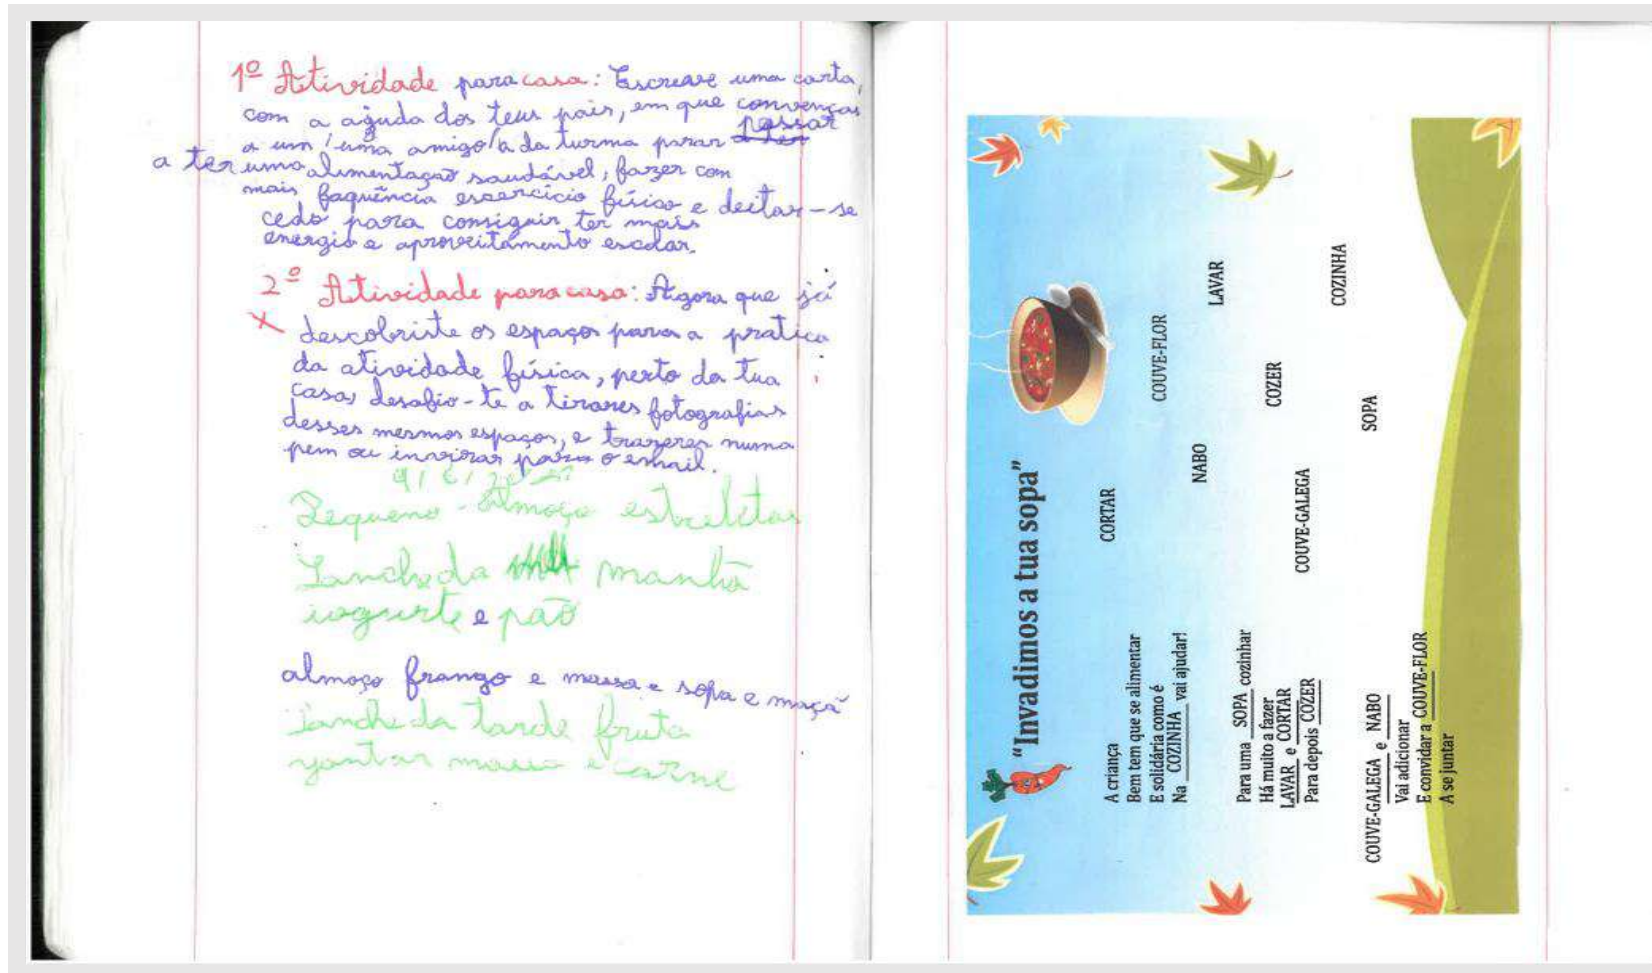 1º Atividade para casa: Escreve uma carta,
com a ajuda dos teus pais, em que convenças
a um/uma amigo/a da turma parar passar
a ter uma alimentação saudável, fazer com
mais faquência escercício físico e deitar-se
cedo para conseguir ter mais
energia e aproveitamento escolar.
2º Atividade para casa: Agora que já
descobriste os espaços para a pratica
da atividade física, perto da tua
casa, desafio-te a tirares fotografias
desses mesmos espaços, e trazeres numa
pem ou inviras para o email.
Pequeno-almoço
Lanche da manhã
iogurte e pão
almoço frango e massa e sopa e maçã
Lanche da tarde fruta
yantar massa e carne
"Invadimos a tua sopa"
A criança
Bem tem que se alimentar
E solidária como é
Na COZINHA vai ajudar!
Para uma SOPA cozinhar
Há muito a fazer
LAVAR e CORTAR
Para depois COZER
COUVE-GALEGA e NABO
Vai adicionar
E convidar a COUVE-FLOR
A se juntar
CORTAR
COUVE-FLOR
NABO
LAVAR
COZER
COUVE-GALEGA
COZINHA
SOPA